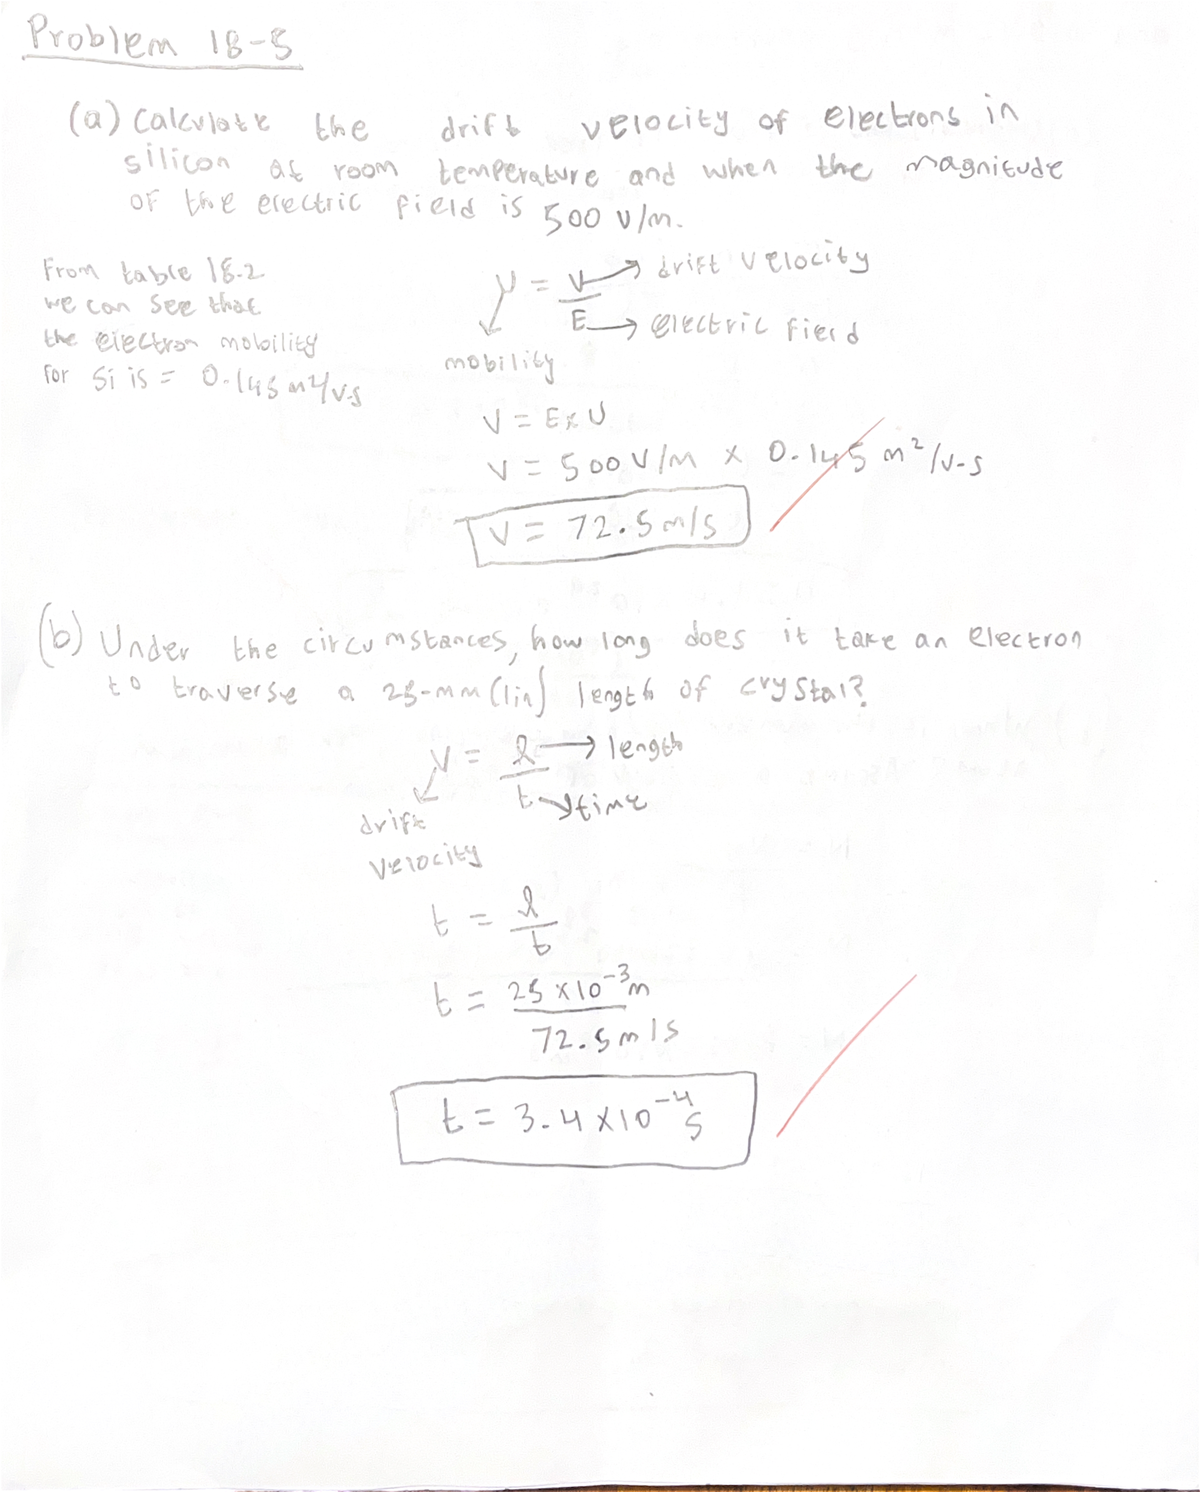 Problem 18-5
(a) Calculate the drift velocity of electrons in
silicon at room temperature and when the magnitude
of the electric field is 500 V/m.
From table 18.2
we can see that
the electron mobility
for Si is = 0.145 m²/V-s
μ = V → drift velocity
E → electric field
mobility
V = E x μ
V = 500 V/m x 0.145 m²/V-s
V = 72.5 m/s
(b) Under the circumstances, how long does it take an electron
to traverse a 25-mm (1in) length of crystal?
V = l → length
t → time
drift
velocity
t = l
t
t = 25 x 10⁻³ m
72.5 m/s
t = 3.4 x 10⁻⁴ s